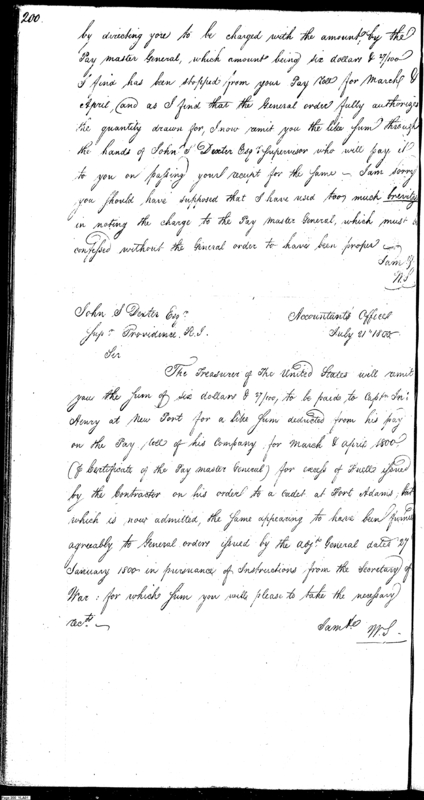 200
by directing you to be charged with the amount, by the
Pay master General, which amount being six dollars & 7/100
I find has been stopped from your Pay Roll for March &
April, (and as I find that the General order fully authorizes
the quantity drawn for, I now remit you the like sum through
the hands of John S Dexter Esqr Supervisor who will pay it
to you on passing your receipt for the same — I am sorry
you should have supposed that I have used too much brevity
in noting the charge to the Pay master General, which must be
confessed without the General order to have been proper —
I am &
W. S.
John S Dexter Esqr
Supr Providence, R. I.
Accountants Office
July 21st 1800
Sir
The Treasurer of The United States will remit
you the sum of six dollars & 7/100, to be paid to Captn Jno:
Henry at New Port for a like sum deducted from his pay
on the Pay Roll of his Company for March & April 1800
(& Certificate of the Pay master General) for excess of Fuel issued
by the Contractor on his order to a cadet at Fort Adams, but
which is now admitted, the same appearing to have been
agreeably to General orders issued by the Adjt General dated 27
January 1800 in pursuance of Instructions from the Secretary of
War: for which sum you will please to take the necessary
rects —
I am &c
W. S.